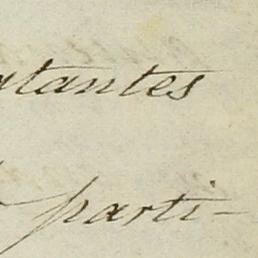 tantes
parti-